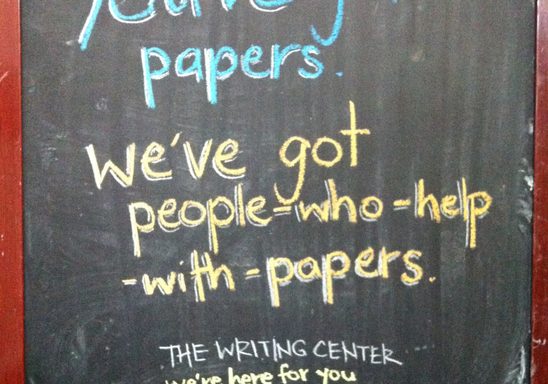 papers.
we've got
people-who-help
-with-papers.
THE WRITING CENTER
we're here for you